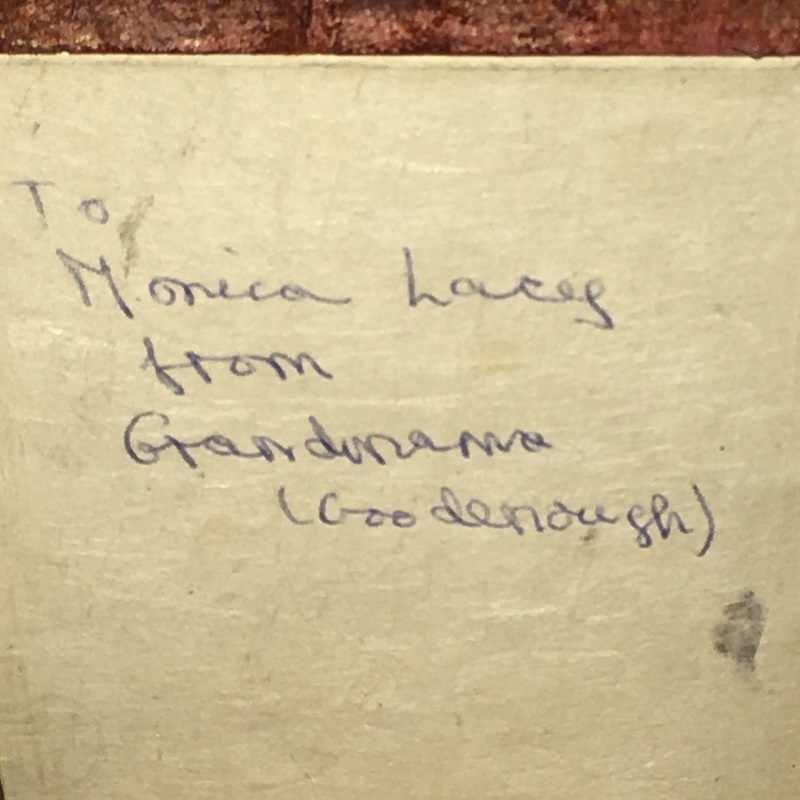 To
Monica Lacey
from
Grandmama
(Goodenough)